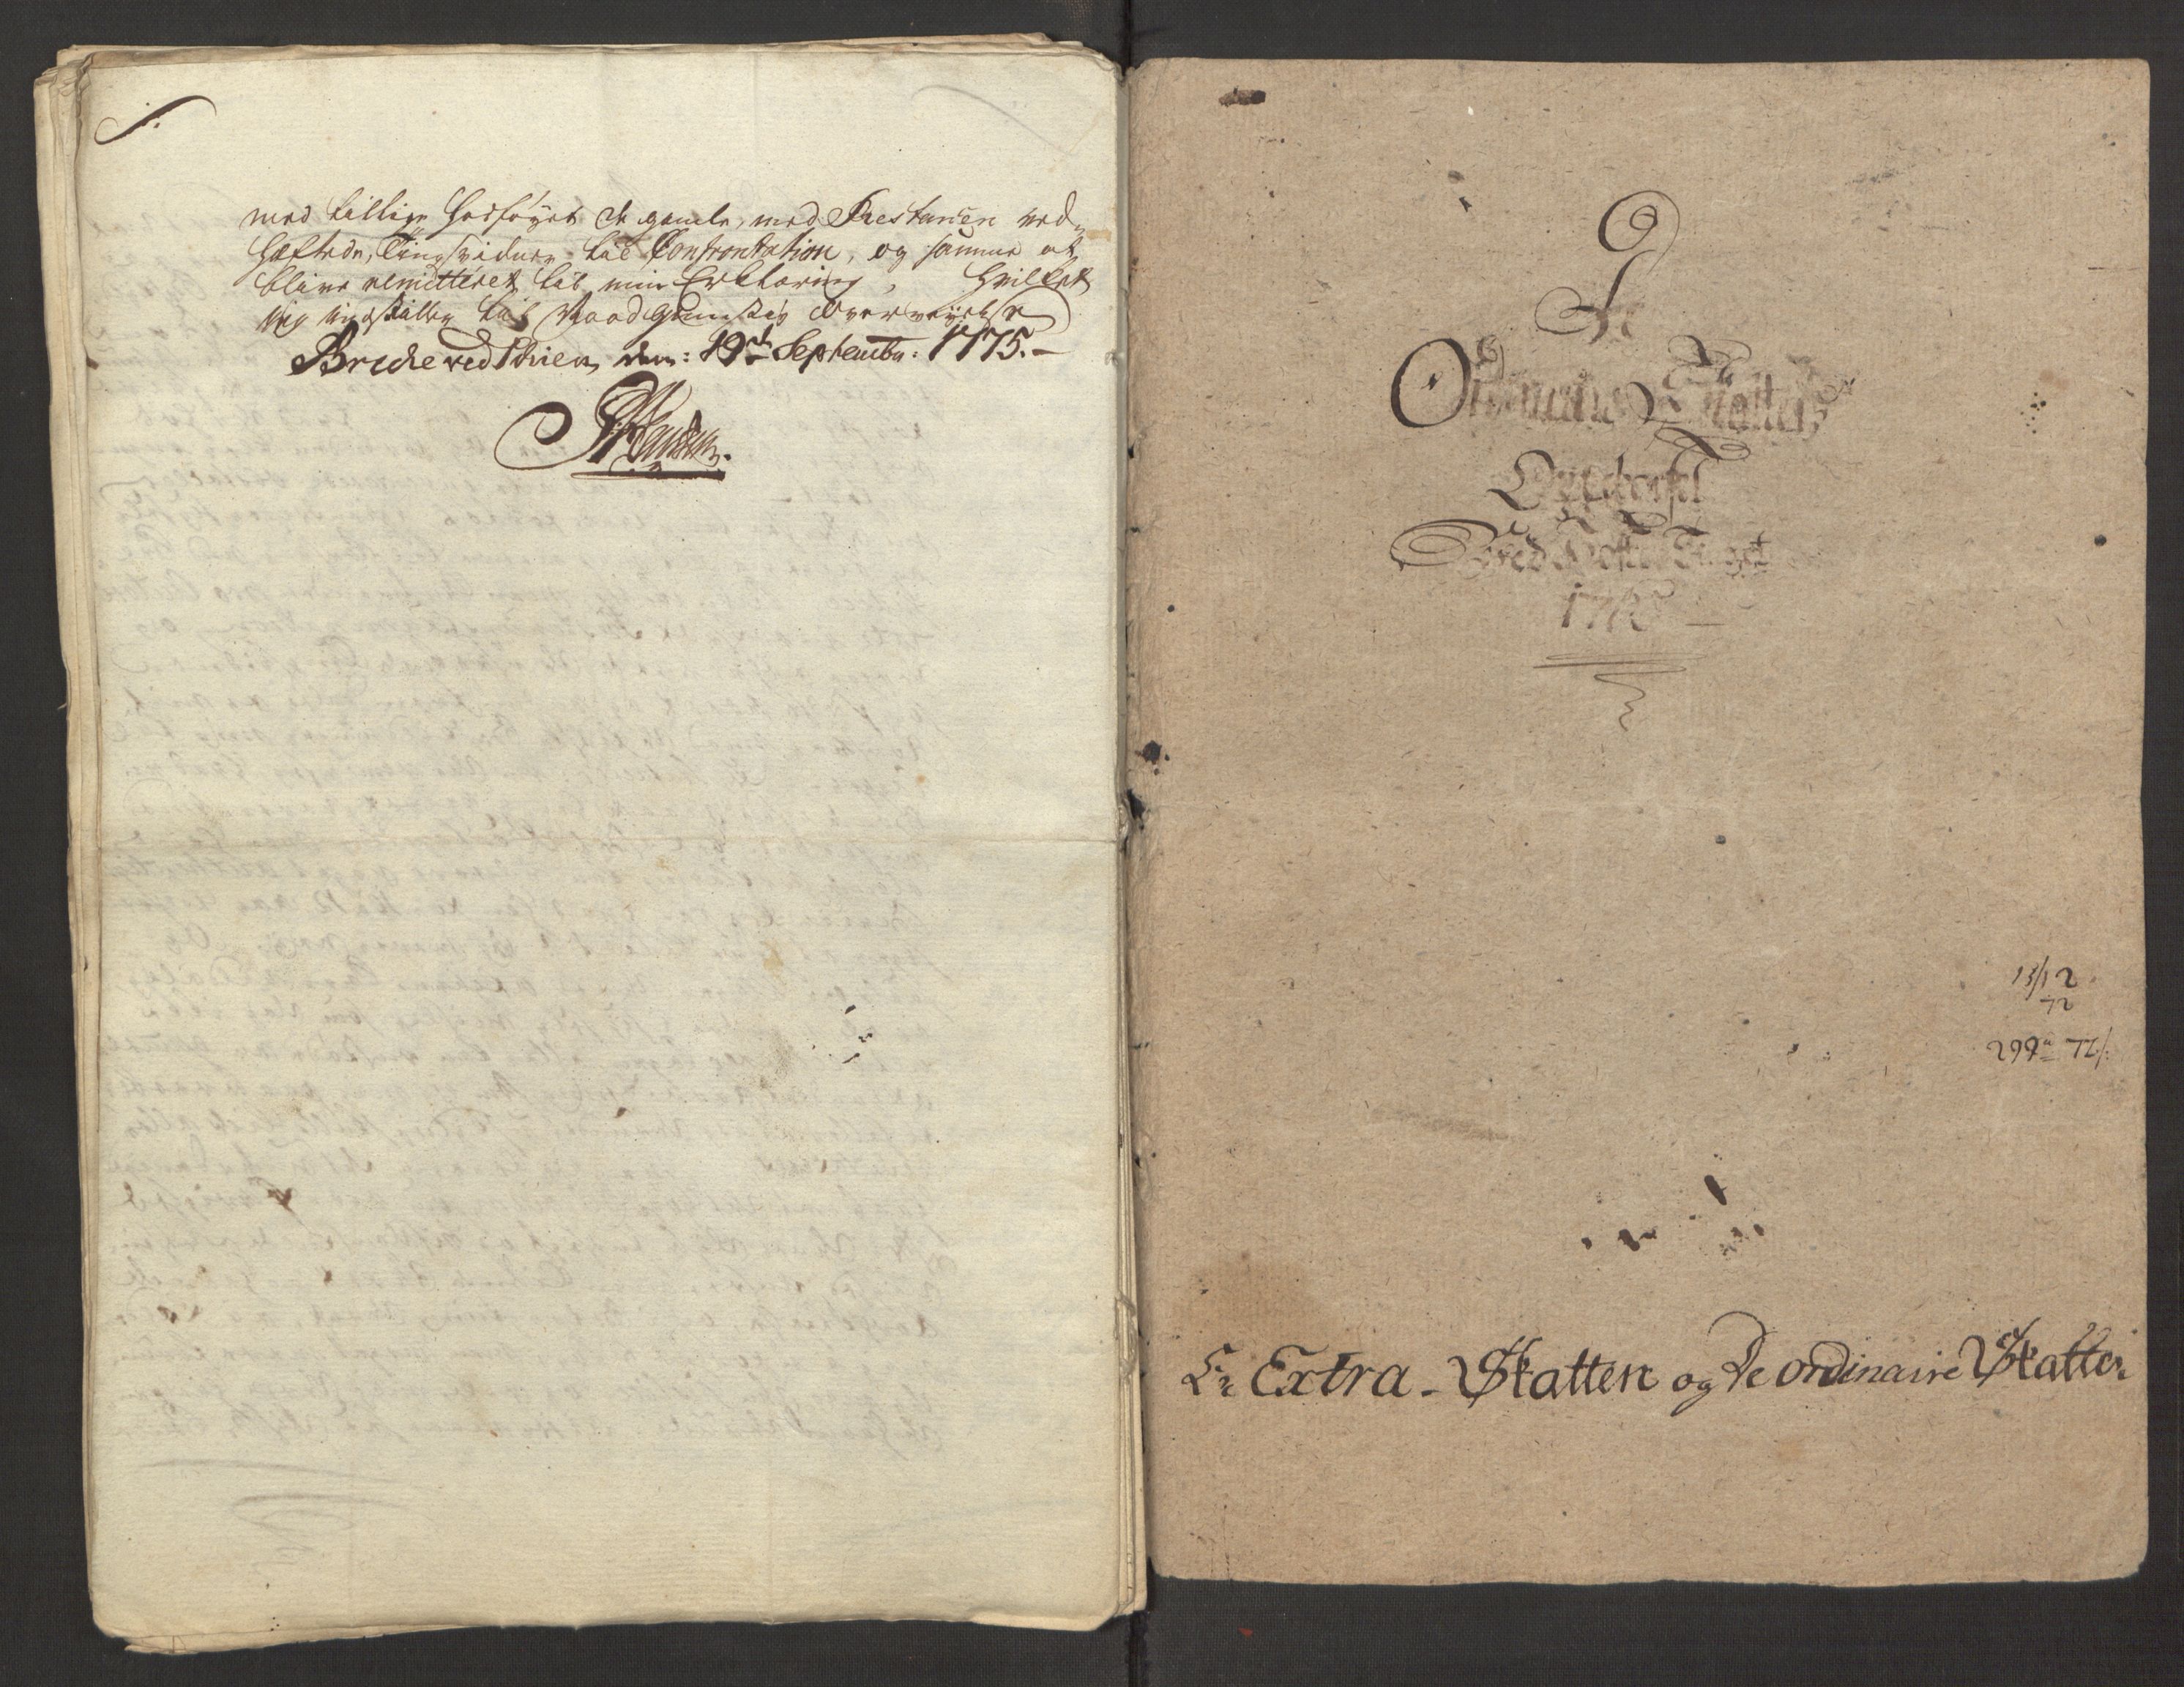 med tillige hosføyet de gamle, med Restancen ved-
hæftede, Tingsvidner til Confrontation, og samme at
blive remitteret til min Erklæring, hvilket
jeg indstiller til Raadgunstig Overveyelse
Brekke ved Schien, den: 19de Septembr: 1775.
De
Ordinaire Skatters
Oppebørsel
Ved Høste Tinget
1775
13/12
72
299
Extra-Skatten og De ordinaire Skatter